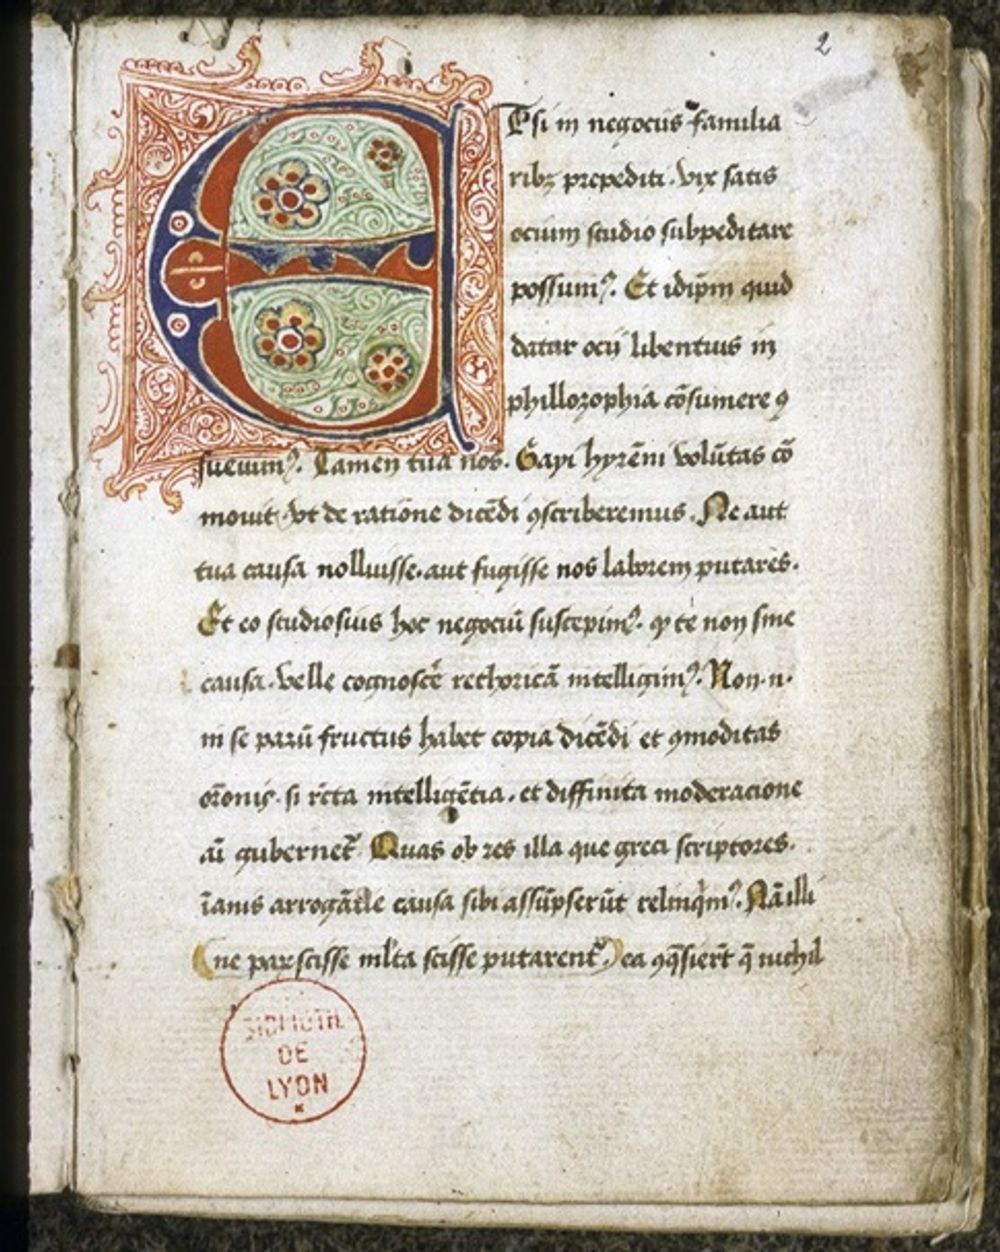 2
ETsi in negociis familia
ribꝫ prepediti. vix satis
ocium studio subpeditare
possumꝰ. Et id ip̄m quid
datur ocii libentius in
phillozophia cōsumere ꝯ
sueuimꝰ. Tamen tua nos. Gayi hyrēni volūtas cō
mouit vt de ratione dicēdi ꝯscriberemus. Ne aut
tua causa nolluisse. aut fugisse nos laborem putares.
Et eo studiosius hoc negociū suscepimꝰ. ꝙ te non sine
causa. velle cognoscē rethoricā intelligimꝰ. Non. n.
in se parū fructus habet copia dicēdi et ꝯmoditas
or̄onis. si rēta intelligētia. et diffinita moderacione
aī gubernet᷑ Quas ob res illa que greci scriptores.
īanis arrogātie causa sibi assūpserūt relinqimꝰ. Nā illi
(ne parscisse ml̄ta scisse putarent᷑) ea ꝯq̇siert̄ q̄ nichil
BIBLIOTH.
DE
LYON